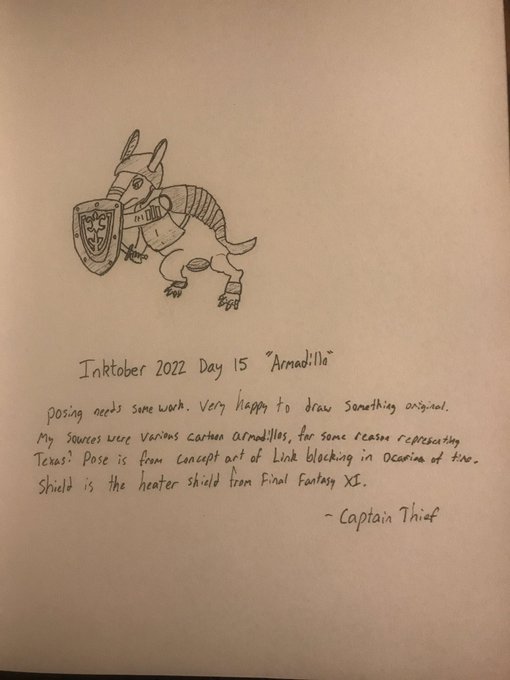 Inktober 2022 Day 15 "Armadillo"
Posing needs some work. Very happy to draw something original.
My sources were various cartoon armadillos, for some reason representing
Texas? Pose is from concept art of Link blocking in Ocarina of time.
Shield is the heater shield from Final Fantasy XI.
- Captain Thief